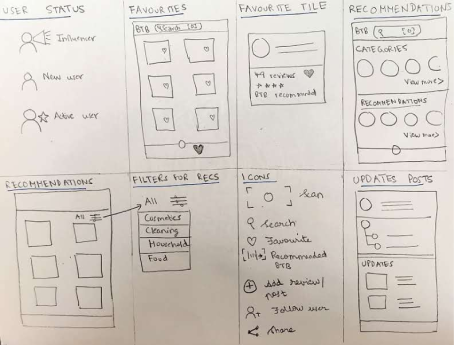 USER STATUS
Influencer
New user
Active user
FAVOURTIES
BTB Search
FAVOURITE TILE
49 reviews
BTB recommended
RECOMMENDATIONS
BTB
CATEGORIES
View more >
RECOMMENDATIONS
View more >
RECOMMENDATIONS
All
FILTERS FOR RECS
All
Cosmetics
Cleaning
Household
Food
ICONS
Scan
Search
Favourite
Recommended
BTB
Add review/
post
Follow user
Share
UPDATES POSTS
UPDATES